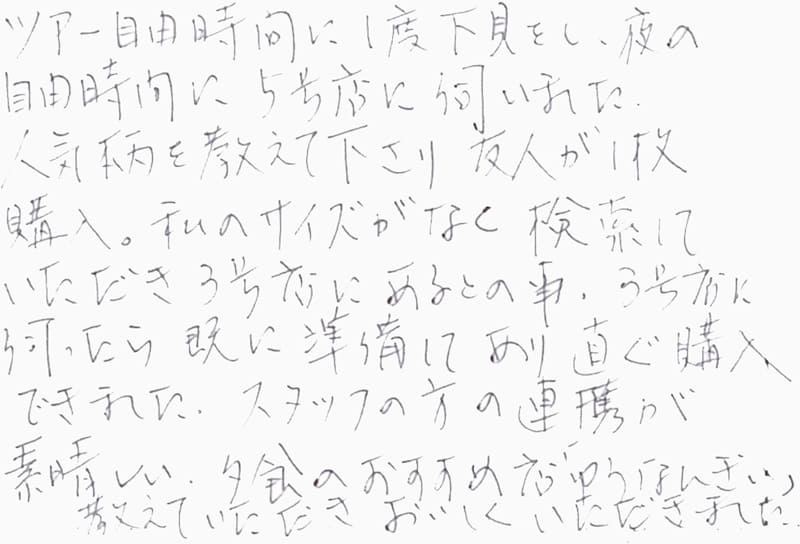 ツアー自由時間に1度下見をし、夜の
自由時間に5号店に伺いました.
人気柄を教えて下さり友人が1枚
購入。私のサイズがなく検索して
いただき3号店にあるとの事、3号店に
伺ったら既に準備してあり直ぐ購入
できました. スタッフの方の連携が
素晴しい. 夕食のおすすめ店「ゆうなんぎい」
教えていただきおいしくいただきました.